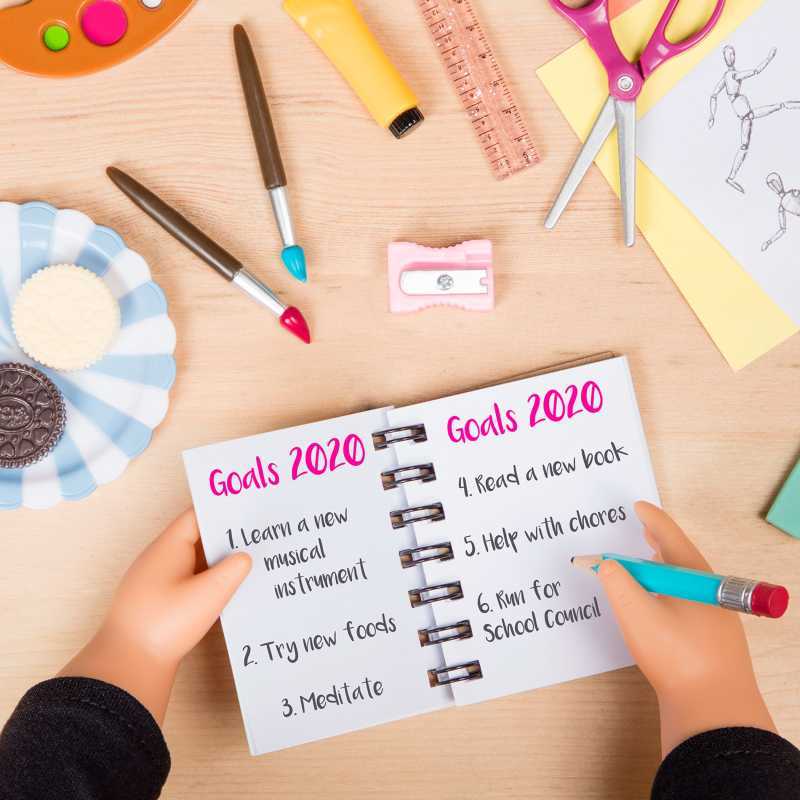 Goals 2020
1. Learn a new
musical
instrument
2. Try new foods
3. Meditate
Goals 2020
4. Read a new book
5. Help with chores
6. Run for
School Council